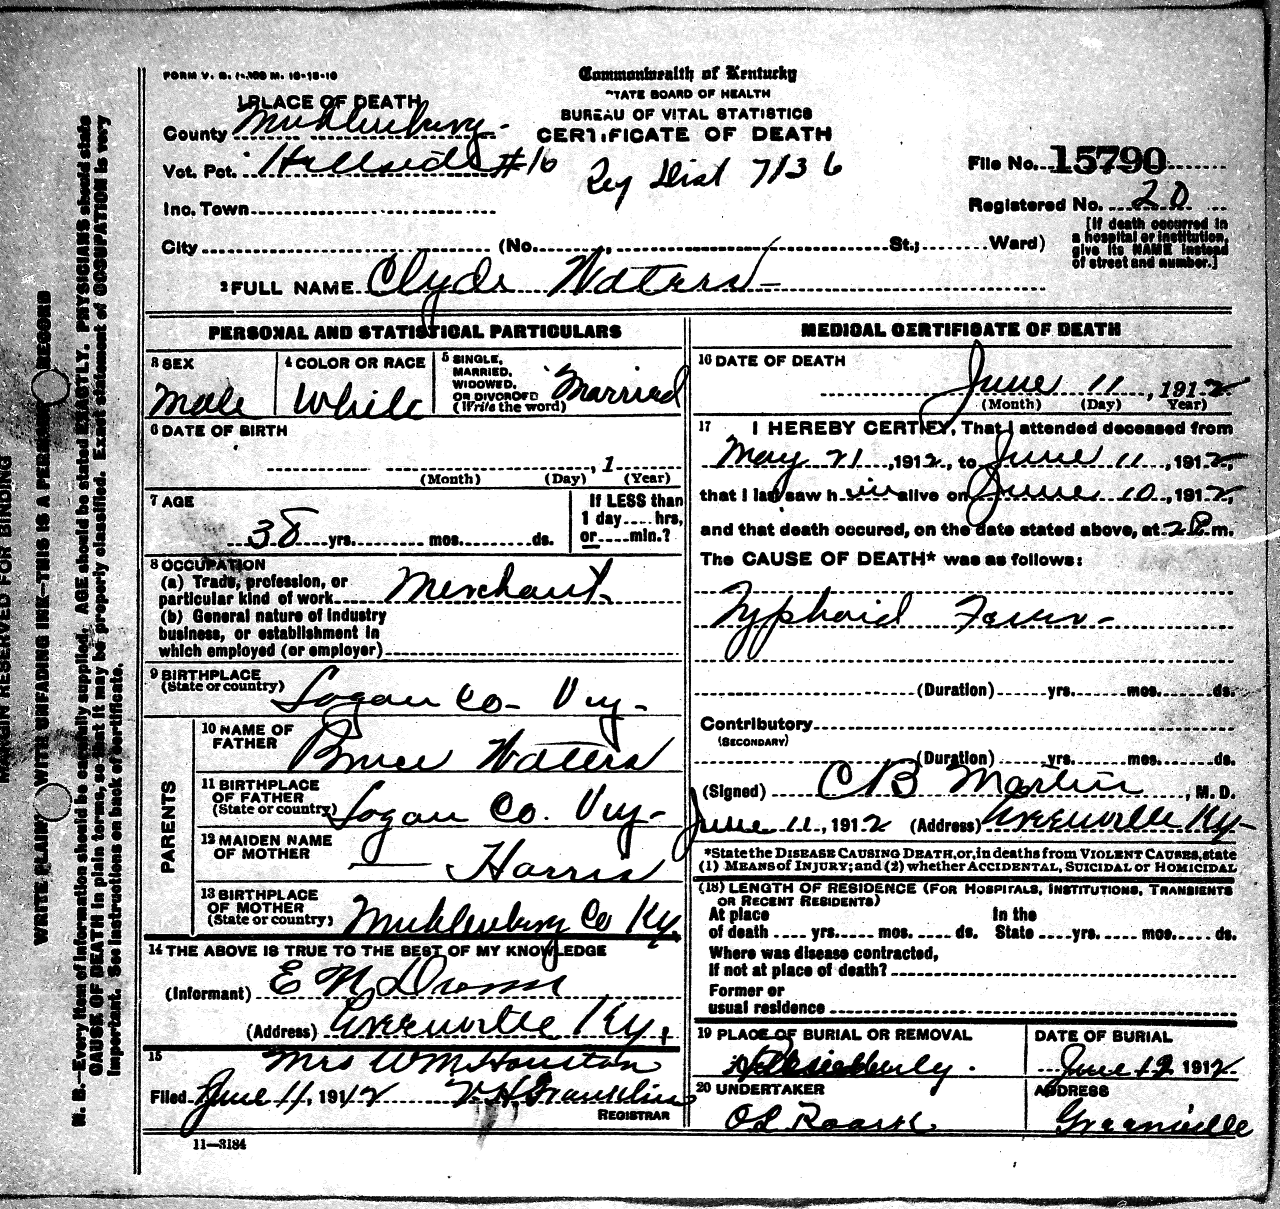 FORM V. S. 1-
M. 10-18-10
Commonwealth of Kentucky
TATE BOARD OF HEALTH
BUREAU OF VITAL STATISTICS
CERTIFICATE OF DEATH
1 PLACE OF DEATH
County Muhlenburg
Vot. Pct. Hillside #16
Reg Dist 7136
File No. 15790
Registered No. 20
Inc. Town
City (No. , St.; Ward)
[If death occurred in
a hospital or institution,
give its NAME instead
of street and number.]
2 FULL NAME Clyde Waters
PERSONAL AND STATISTICAL PARTICULARS
3 SEX
Male
4 COLOR OR RACE
White
5 SINGLE,
MARRIED,
WIDOWED,
OR DIVORCED
(Write the word)
Married
6 DATE OF BIRTH
, 1
(Month) (Day) (Year)
7 AGE
38 yrs. mos. ds.
If LESS than
1 day.... hrs,
or.... min.?
8 OCCUPATION
(a) Trade, profession, or
particular kind of work Merchant
(b) General nature of industry
business, or establishment in
which employed (or employer)
9 BIRTHPLACE
(State or country) Logan Co- Ky-
PARENTS
10 NAME OF
FATHER Bruce Waters
11 BIRTHPLACE
OF FATHER
(State or country) Logan Co. Ky-
12 MAIDEN NAME
OF MOTHER — Harris
13 BIRTHPLACE
OF MOTHER
(State or country) Muhlenburg Co Ky.
14 THE ABOVE IS TRUE TO THE BEST OF MY KNOWLEDGE
(Informant) E M
(Address) Greenville Ky.
15 Mrs WM Houston
Filed June 11, 1912 V. H Franklin
REGISTRAR
11—3184
MEDICAL CERTIFICATE OF DEATH
16 DATE OF DEATH
June 11, 1912
(Month) (Day) Year)
17 I HEREBY CERTIFY, That I attended deceased from
May 21, 1912, to June 11, 1912,
that I last saw him alive on June 10, 1912,
and that death occured, on the date stated above, at 2 P. m.
The CAUSE OF DEATH* was as follows:
Typhoid Fever-
(Duration) yrs. mos. ds.
Contributory
(SECONDARY)
(Duration) yrs. mos. ds.
(Signed) C B Martin, M. D.
June 11, 1912 (Address) Greenville Ky-
*State the DISEASE CAUSING DEATH, or, in deaths from VIOLENT CAUSES, state
(1) MEANS of INJURY; and (2) whether ACCIDENTAL, SUICIDAL or HOMICIDAL
(18) LENGTH OF RESIDENCE (FOR HOSPITALS, INSTITUTIONS, TRANSIENTS
OR RECENT RESIDENTS)
At place In the
of death yrs. mos. ds. State yrs. mos. ds.
Where was disease contracted,
If not at place of death?
Former or
usual residence
19 PLACE OF BURIAL OR REMOVAL
DATE OF BURIAL
June 12 1912
20 UNDERTAKER
O L Roark.
ADDRESS
Greenville
MARGIN RESERVED FOR BINDING
WRITE PLAIN WITH UNFADING INK—THIS IS A PERMA RECORD
N. B.—Every item of information should be carefully supplied. AGE should be stated EXACTLY. PHYSICIANS should state
CAUSE OF DEATH in plain terms, so that it may be properly classified. Exact statement of OCCUPATION is very
important. See instructions on back of certificate.